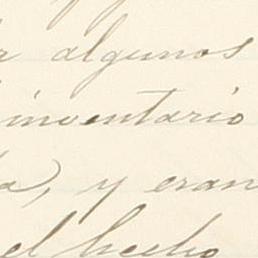 algunos
inventario
y eran
el hecho